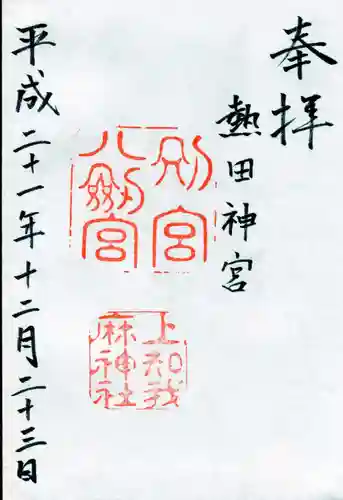 奉拝
熱田神宮
別宮
八剱宮
上知我
麻神社
平成二十一年十二月二十三日